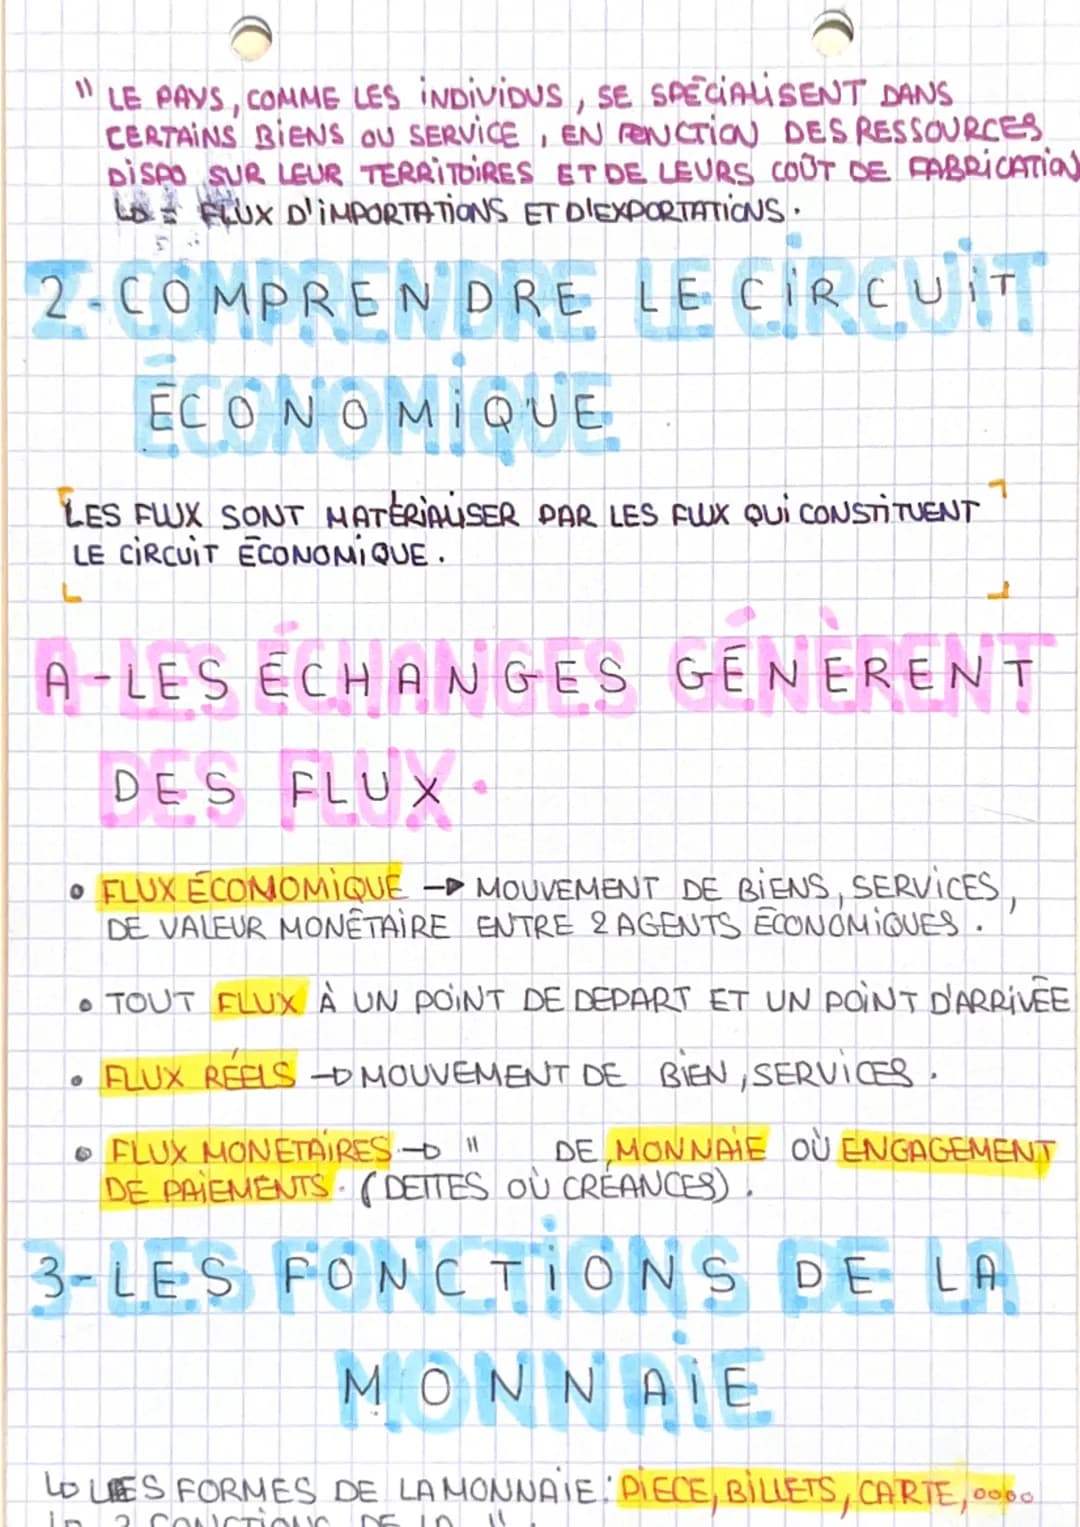 " LE PAYS, COMME LES INDIVIDUS, SE SPÉCIALISENT DANS
CERTAINS BIENS OU SERVICE, EN FONCTION DES RESSOURCES
DISPO SUR LEUR TERRITOIRES ET DE LEURS COÛT DE FABRICATION
↳ = FLUX D'IMPORTATIONS ET D'EXPORTATIONS.
2-COMPRENDRE LE CIRCUIT
ÉCONOMIQUE
LES FLUX SONT MATÉRIALISER PAR LES FLUX QUI CONSTITUENT
LE CIRCUIT ÉCONOMIQUE.
A-LES ÉCHANGES GÉNÈRENT
DES FLUX.
• FLUX ÉCOMOMIQUE → MOUVEMENT DE BIENS, SERVICES,
DE VALEUR MONÉTAIRE ENTRE 2 AGENTS ÉCONOMIQUES.
• TOUT FLUX À UN POINT DE DEPART ET UN POINT D'ARRIVÉE
• FLUX RÉELS → MOUVEMENT DE BIEN, SERVICES.
• FLUX MONETAIRES → " DE MONNAIE OÙ ENGAGEMENT
DE PAIEMENTS. (DETTES OÙ CRÉANCES).
3-LES FONCTIONS DE LA
MONNAIE
↳ LES FORMES DE LA MONNAIE: PIECE, BILLETS, CARTE, ....